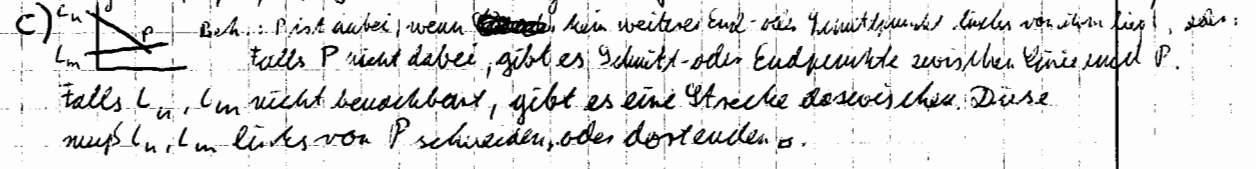 c) Ln Lm P Beh.: P ist dabei, wenn kein weiterer End- oder Schnittpunkt links von ihm liegt, oder:
falls P nicht dabei, gibt es Schnitt- oder Endpunkte zwischen Linie und P.
Falls Ln, Lm nicht benachbart, gibt es eine Strecke dazwischen. Diese
muß Ln, Lm links von P schneiden, oder dort enden □.